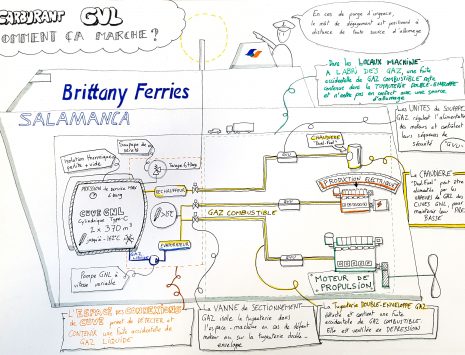 CARBURANT GNL
COMMENT ÇA MARCHE?
En cas de purge d'urgence,
le mât de dégagement est positionné à
distance de toute source d'allumage
Dans les LOCAUX MACHINE
À L'ABRI DES GAZ, une fuite
accidentelle de GAZ COMBUSTIBLE reste
contenue dans la TUYAUTERIE DOUBLE-ENVELOPPE
et n'entre pas en contact avec une source
d'allumage
Brittany Ferries
SALAMANCA
Soupape de
sûreté
Isolation thermique
perlite + vide
PRESSION de service MAX
6 barg
CUVE GNL
Cylindrique Type-C
2 x 370 m³
jusqu'à -162°C
RÉCHAUFFEUR
GAZ COMBUSTIBLE
VAPORISATEUR
GAZ LIQUIDE
Pompe GNL à
vitesse variable
CHAUDIÈRE
"Dual-Fuel"
GVU
GVU
GVU
PRODUCTION ÉLECTRIQUE
MOTEUR DE
PROPULSION
Les UNITÉS de SOUPAPE
GAZ régulent l'alimentation
des moteurs et contrôlent
leurs séquences de
sécurité
La CHAUDIÈRE
"Dual-Fuel" peut être
alimentée par les
VAPEURS de GAZ des
CUVES GNL, pour
maintenir leur PRESSION
BASSE
L'ESPACE DES CONNEXIONS
DE CUVE permet de DÉTECTER et
CONTENIR une fuite accidentelle de
GAZ LIQUIDE
La VANNE de SECTIONNEMENT
GAZ isole la tuyauterie dans
l'espace-machine en cas de défaut
moteur ou sur la tuyauterie double-
enveloppe
La Tuyauterie DOUBLE-ENVELOPPE GAZ
détecte et contient une fuite
accidentelle de GAZ COMBUSTIBLE
Elle est ventilée en DÉPRESSION